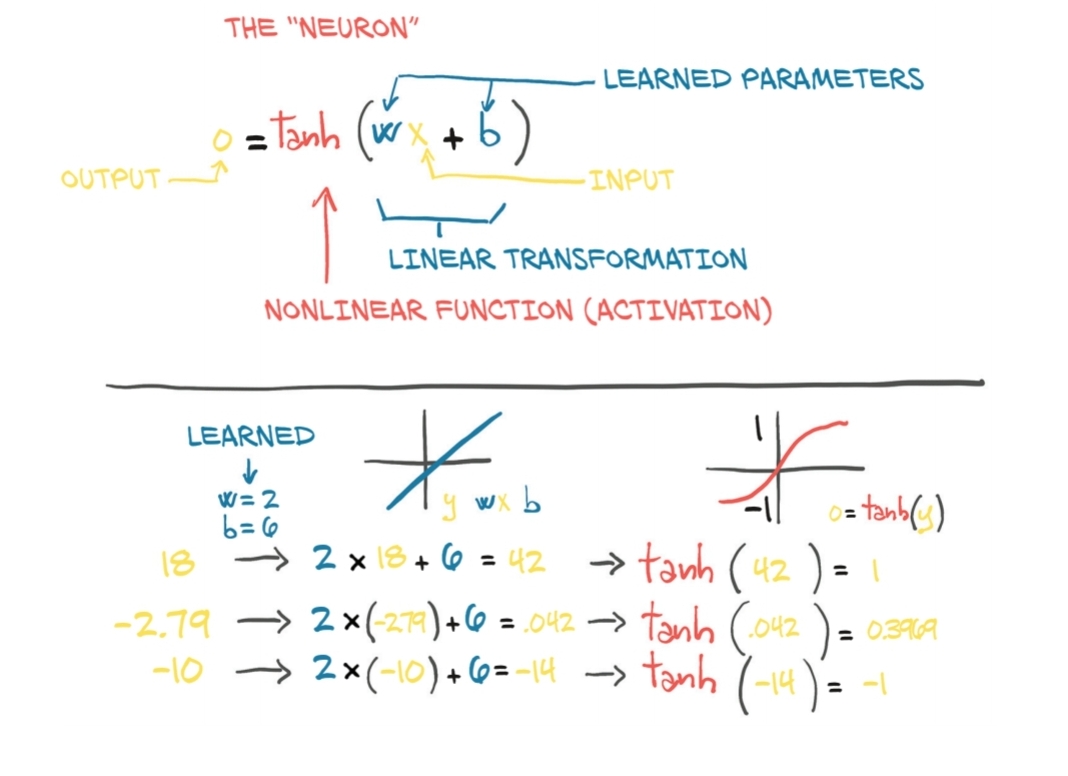 THE "NEURON"
LEARNED PARAMETERS
o = tanh (wx + b)
OUTPUT
INPUT
LINEAR TRANSFORMATION
NONLINEAR FUNCTION (ACTIVATION)
LEARNED
w=2
b=6
y wx b
1
-1
o=tanh(y)
18 → 2 × 18 + 6 = 42 → tanh (42) = 1
-2.79 → 2 ×(-279)+6 = .042 → tanh (.042) = 0.3969
-10 → 2 ×(-10)+6= -14 → tanh (-14) = -1